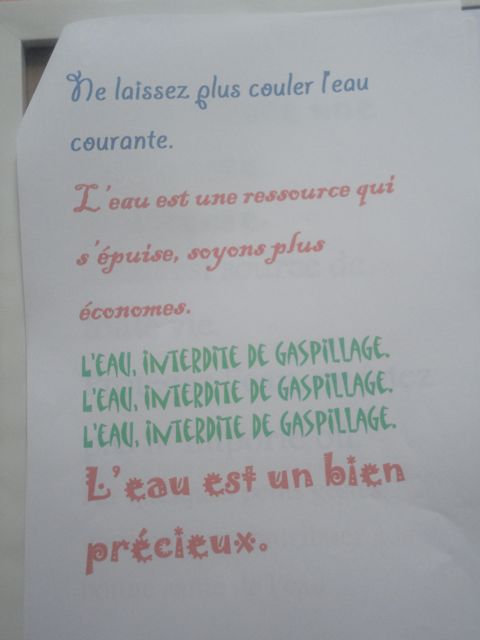 Ne laissez plus couler l'eau
courante.
L'eau est une ressource qui
s'épuise, soyons plus
économes.
L'EAU, INTERDITE DE GASPILLAGE.
L'EAU, INTERDITE DE GASPILLAGE.
L'EAU, INTERDITE DE GASPILLAGE.
L'eau est un bien
précieux.